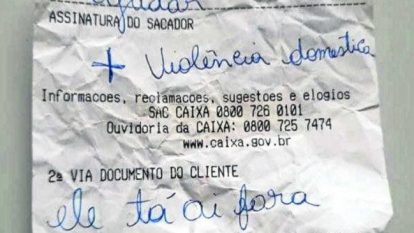 ajudar
ASSINATURA DO SACADOR
+ Violência domestica
Informacoes, reclamacoes, sugestoes e elogios
SAC CAIXA 0800 726 0101
Ouvidoria da CAIXA: 0800 725 7474
www.caixa.gov.br
2ª VIA DOCUMENTO DO CLIENTE
ele tá ai fora